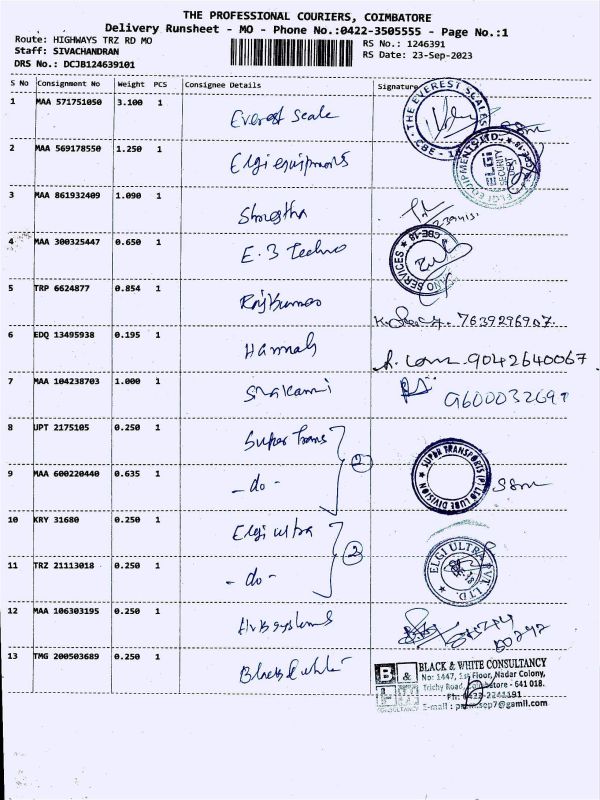 THE PROFESSIONAL COURIERS, COIMBATORE
Delivery Runsheet - MO - Phone No.:0422-3505555 - Page No.:1
Route: HIGHWAYS TRZ RD MO
Staff: SIVACHANDRAN
DRS No.: DCJB124639101
RS No.: 1246391
RS Date: 23-Sep-2023
S No Consignment No Weight PCS Consignee Details Signature
1 MAA 571751050 3.100 1 Everest Scale
THE EVEREST SCALES
2 MAA 569178550 1.250 1 Elgi equipments
ELGI EQUIPMENTS LTD.
ELGI
SECURITY
DEPT
3 MAA 861932409 1.090 1
4 MAA 300325447 0.650 1 E.3 Techno
SERVICES CBE-18
5 TRP 6624877 0.854 1 Rajkumar
7639296907
6 EDQ 13495938 0.195 1 Hannah
9042640067
7 MAA 104238703 1.000 1
8 UPT 2175105 0.250 1 Super Trans
9 MAA 600220440 0.635 1 - do - 2
SUPER TRANSPORTS (P) LTD LUBE DIVISION
10 KRY 31680 0.250 1 Elgi ultra
11 TRZ 21113018 0.250 1 - do - 2
ELGI ULTRA PVT. LTD.
12 MAA 106303195 0.250 1
13 TMG 200503689 0.250 1
B &
BLACK & WHITE CONSULTANCY
No: 1447, 1st Floor, Nadar Colony,
Trichy Road, Coimbatore - 641 018.
Ph: 0422-2241191
CONSULTANCY